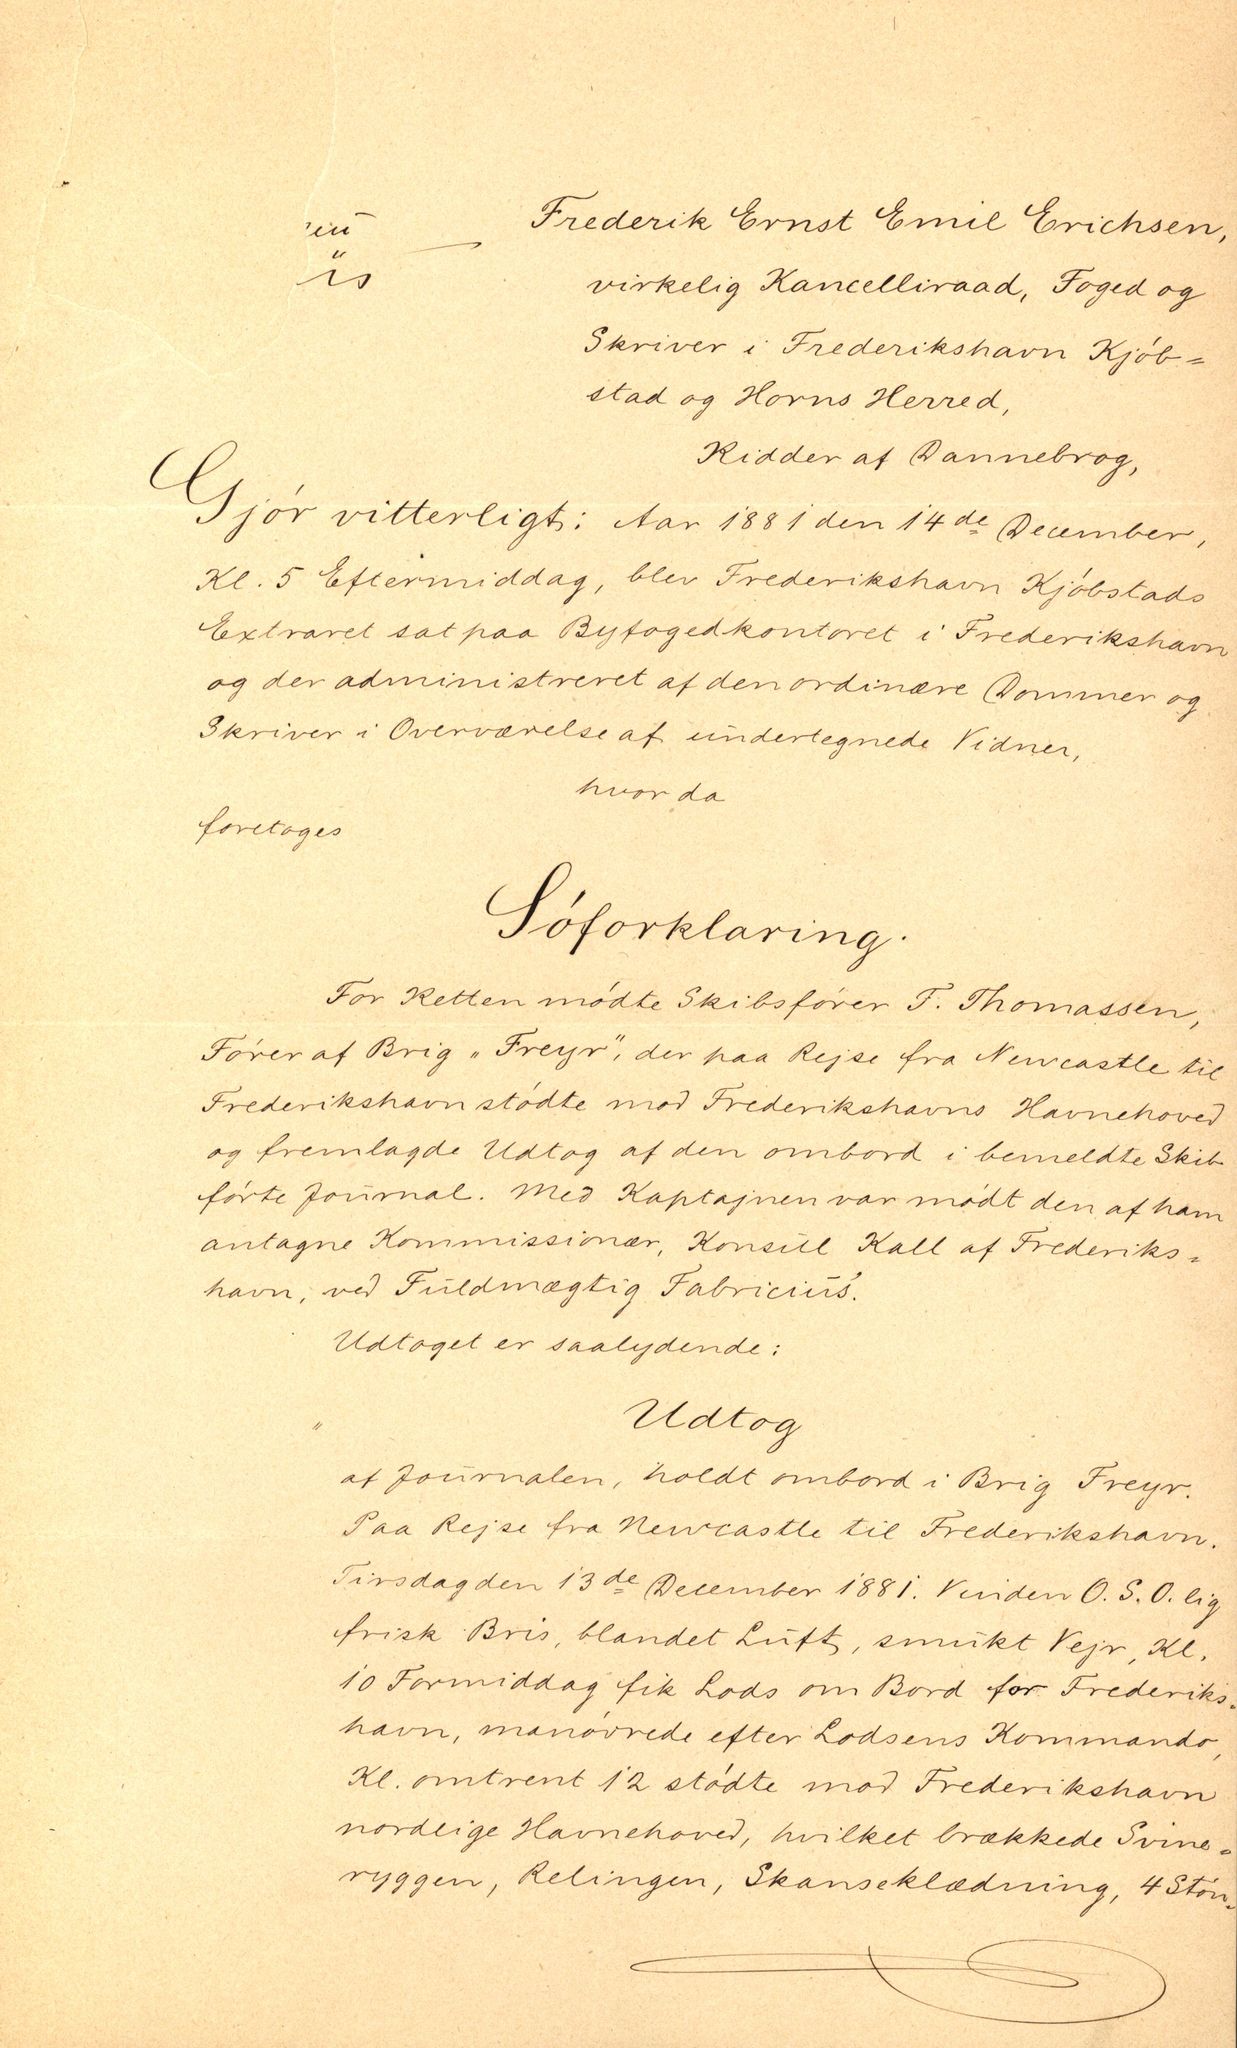 Frederik Ernst Emil Erichsen,
virkelig Kancelliraad, Foged og
Skriver i Frederikshavn Kjøb=
stad og Horns Herred,
Ridder af Dannebrog,
Gjør vitterligt: Aar 1881 den 14de December,
Kl. 5 Eftermiddag, blev Frederikshavn Kjøbstads
Extraret sat paa Byfogedkontoret i Frederikshavn
og der administreret af den ordinære Dommer og
Skriver i Overværelse af undertegnede Vidner,
hvor da
foretoges
Søforklaring.
For Retten mødte Skibsfører F. Thomassen,
Fører af Brig „Freyr", der paa Rejse fra Newcastle til
Frederikshavn stødte mod Frederikshavns Havnehoved
og fremlagde Udtog af den ombord i bemeldte Skib
førte Journal. Med Kaptajnen var mødt den af ham
antagne Kommissionær, Konsul Kall af Frederiks=
havn, ved Fuldmægtig Fabricius.
Udtoget er saalydende:
" Udtog
af Journalen, holdt ombord i Brig Freyr.
Paa Rejse fra Newcastle til Frederikshavn.
Tirsdag den 13de December 1881. Vinden O. S. O. lig
frisk Bris, blandet Luft, smukt Vejr, Kl.
10 Formiddag fik Lods om Bord for Frederiks=
havn, manøvrede efter Lodsens Kommando,
Kl. omtrent 12 stødte mod Frederikshavn
nordlige Havnehoved, hvilket brækkede Svine=
ryggen, Relingen, Skanseklædning, 4 Støn=